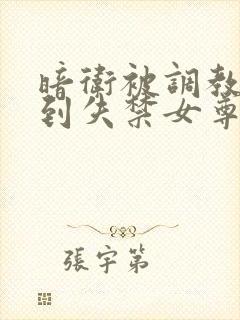 暗衛被調教
到失禁女尊
張宇第